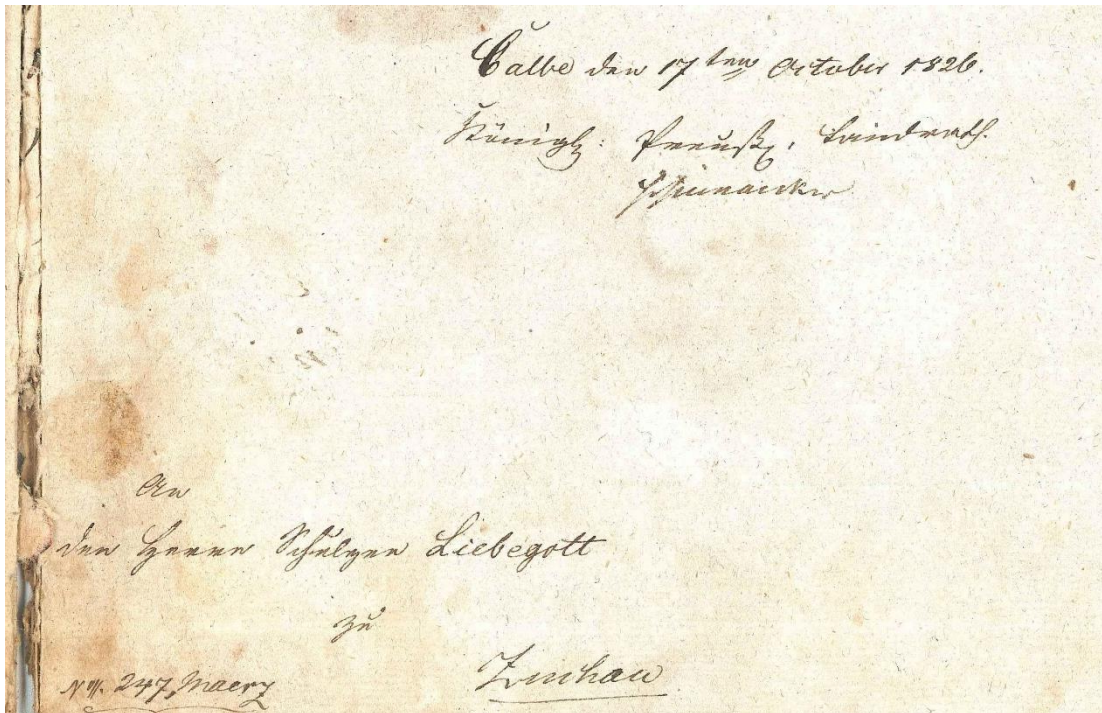 Calbe den 17ten October 1826.
Königl: Preuß. Landrath.
An
den Herrn Schulzen Liebegott
zu
Zuchau
247, Maerz